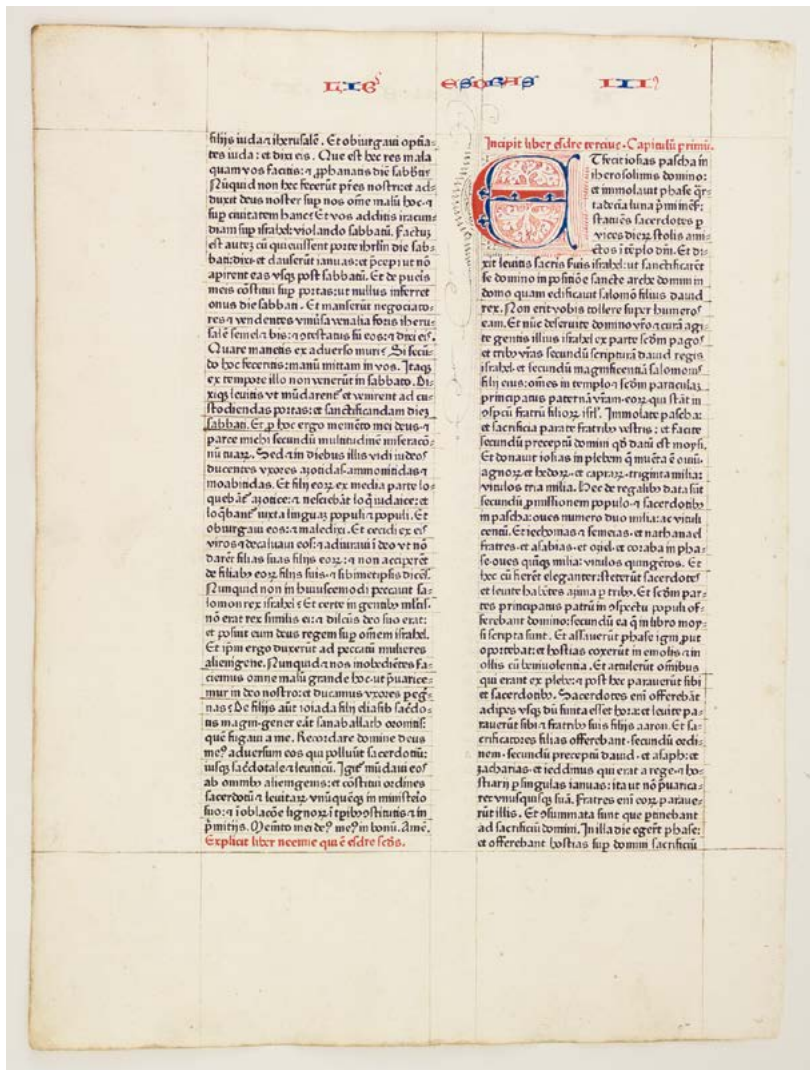 LIB' ESDRAS III?
filijs iuda ⁊ iherusalē. Et obiurgaui optīa-
tes iuda: et dixi eis. Que est hec res mala
quam vos facitis: ⁊ ꝓphanatis diē sabb̄ti?
Nūquid non hec fecerūt p̄res nostri: et ad-
duxit deus noster sup nos ōme malū hoc ⁊
sup ciuitatem hanc? Et vos additis iracun-
diam sup israhel: violando sabbatū. Factū
est autē cū quieuissent porte ihrl̄m die sab-
bati: dixi: et clauserūt ianuas: et p̄cepi ut nō
apirent eas vsq̄ post sabbatū. Et de pueīs
meis cōstitui sup portas: ut nullus inferret
onus die sabbati. Et manserūt negociato-
res ⁊ vendentes vniūsa venalia foris iheru-
salē semel ⁊ bis: ⁊ ꝯtestatus sū eos: ⁊ dixi eis.
Quare manetis ex aduerso muri? Si secū-
do hoc feceritis: manū mittam in vos. Itaqꝫ
ex tempore illo non venerūt in sabbato. Di-
xiqꝫ leuitis vt mūdarent᷑ et venirent ad cu-
stodiendas portas: et sanctificandam dieꝫ
sabbati. Et ꝓ hoc ergo memēto mei deus ⁊
parce michi secundū multitudinē miseracō-
nū tuaꝝ. Sed ⁊ in diebus illis vidi iudeos
ducentes vxores azotidas ammonitidas ⁊
moabitidas. Et filij eoꝝ ex media parte lo-
quebāt᷑ azotice: ⁊ nesciebāt loq̄ iudaice: et
loq̄bant᷑ iuxta linguaꝫ populi ⁊ populi. Et
obiurgaui eos: ⁊ maledixi. Et cecidi ex eis
viros ⁊ decaluaui eos: ⁊ adiuraui ī deo vt nō
darēt filias suas filijs eoꝝ: ⁊ non acciperēt
de filiabꝫ eoꝝ filijs suis ⁊ sibimetipsis dicēs.
Nunquid non in huiuscemodi peccauit sa-
lomon rex israhel? Et certe in gentibꝫ ml̄tis
nō erat rex similis ei: ⁊ dilc̄us deo suo erat:
et posuit eum deus regem sup om̄em israhel.
Et ip̄m ergo duxerūt ad peccatū mulieres
alienigene. Nunquid ⁊ nos inobediētes fa-
ciemus omne malū grande hoc ut p̄uarice-
mur in deo nostro: et ducamus vxores peg̓-
nas? De filijs aūt ioiada filij eliasib sac̓do-
tis magni gener eāt sanaballath oronitis:
quē fugaui a me. Recordare domine deus
me? aduersum eos qui polluūt sacerdotiū:
iusqꝫ sac̓dotale ⁊ leuiticū. Igit᷑ mūdaui eos
ab omnibꝫ alienigenis: et cōstitui ordines
sacerdotū ⁊ leuitaꝝ vnūquēqꝫ in ministeio
suo: ⁊ ī oblacōe lignoꝝ ī tꝑibꝫ ꝯstitutis ⁊ in
p̄mitijs. Memēto mei de? me? in bonū. Amē.
Explicit liber neemie qui ē esdre scd̄s.
Incipit liber esdre tercius. Capitulū primū.
ET fecit iosias pascha in
iherosolimis domino:
et immolauit phase q̄r-
tadecīa luna p̄mi mēs̄:
statuēs sacerdotes ꝑ
vices dieꝝ stolis ami-
ctos ī tēplo dn̄i. Et di-
xit leuitis sacris suis israhel: ut sanctificarēt
se domino in positiōe sancte arche domini in
domo quam edificauit salomō filius dauid
rex. Non erit vobis tollere super humeros
eam. Et nūc deseruite domino vr̄o ⁊ curā agi-
te gentis illius israhel ex parte scd̄m pagos
et tribꝫ vr̄as secundū scripturā dauid regis
israhel ⁊ secundū magnificentiā salomonis
filij eius: om̄es in templo ⁊ scd̄m particulaꝫ
principatus paternā vr̄am: eoꝝ qui stāt in
ꝯspc̄u fratrū filioꝝ isrl̄. Immolate pascha:
et sacrificia parate fratribꝫ vestris: et facite
secundū preceptū domini qd̄ datū est moysi.
Et donauit iosias in plebem q̄ inuēta ē ouiū
agnoꝝ et hedoꝝ et capraꝝ triginta milia:
vitulos tria milia. Hec de regalibꝫ data sūt
secundū ꝓmissionem populo ⁊ sacerdotibꝫ
in pascha: oues numero duo milia: ac vituli
centū. Et iechonias ⁊ semeias et nathanael
fratres et asabias et oziel et coraba in pha-
se oues quīqꝫ milia: vitulos quingētos. Et
hec cū fierēt eleganter: steterūt sacerdotes
et leuite habētes azima ꝑ tribꝫ. Et scd̄m par-
tes principatus patrū in ꝯspectu populi of-
ferebant domino: secundū ea q̄ in libro moy-
si scripta sunt. Et assauerūt phase igni put
oportebat: et hostias coxerūt in emolis ⁊ in
ollis cū beniuolentia. Et attulerūt om̄ibus
qui erant ex plebe: ⁊ post hec parauerūt sibi
et sacerdotibꝫ. Sacerdotes eni offerebāt
adipes vsqꝫ dū finita esset hora: et leuite pa-
rauerūt sibi ⁊ fratribꝫ suis filijs aaron. Et sa-
crificatores filias offerebant secundū ordi-
nem secundū preceptū dauid et asaph: et
zacharias et ieddimus qui erat a rege ⁊ ho-
stiarij ꝑ singulas ianuas: ita ut nō p̄uarica-
ret vnusquisqꝫ suā. Fratres eni eoꝝ paraue-
rūt illis. Et ꝯsummata sunt que ptinebant
ad sacrificiū domini. In illa die egerūt phase:
et offerebant hostias sup domini sacrificiū